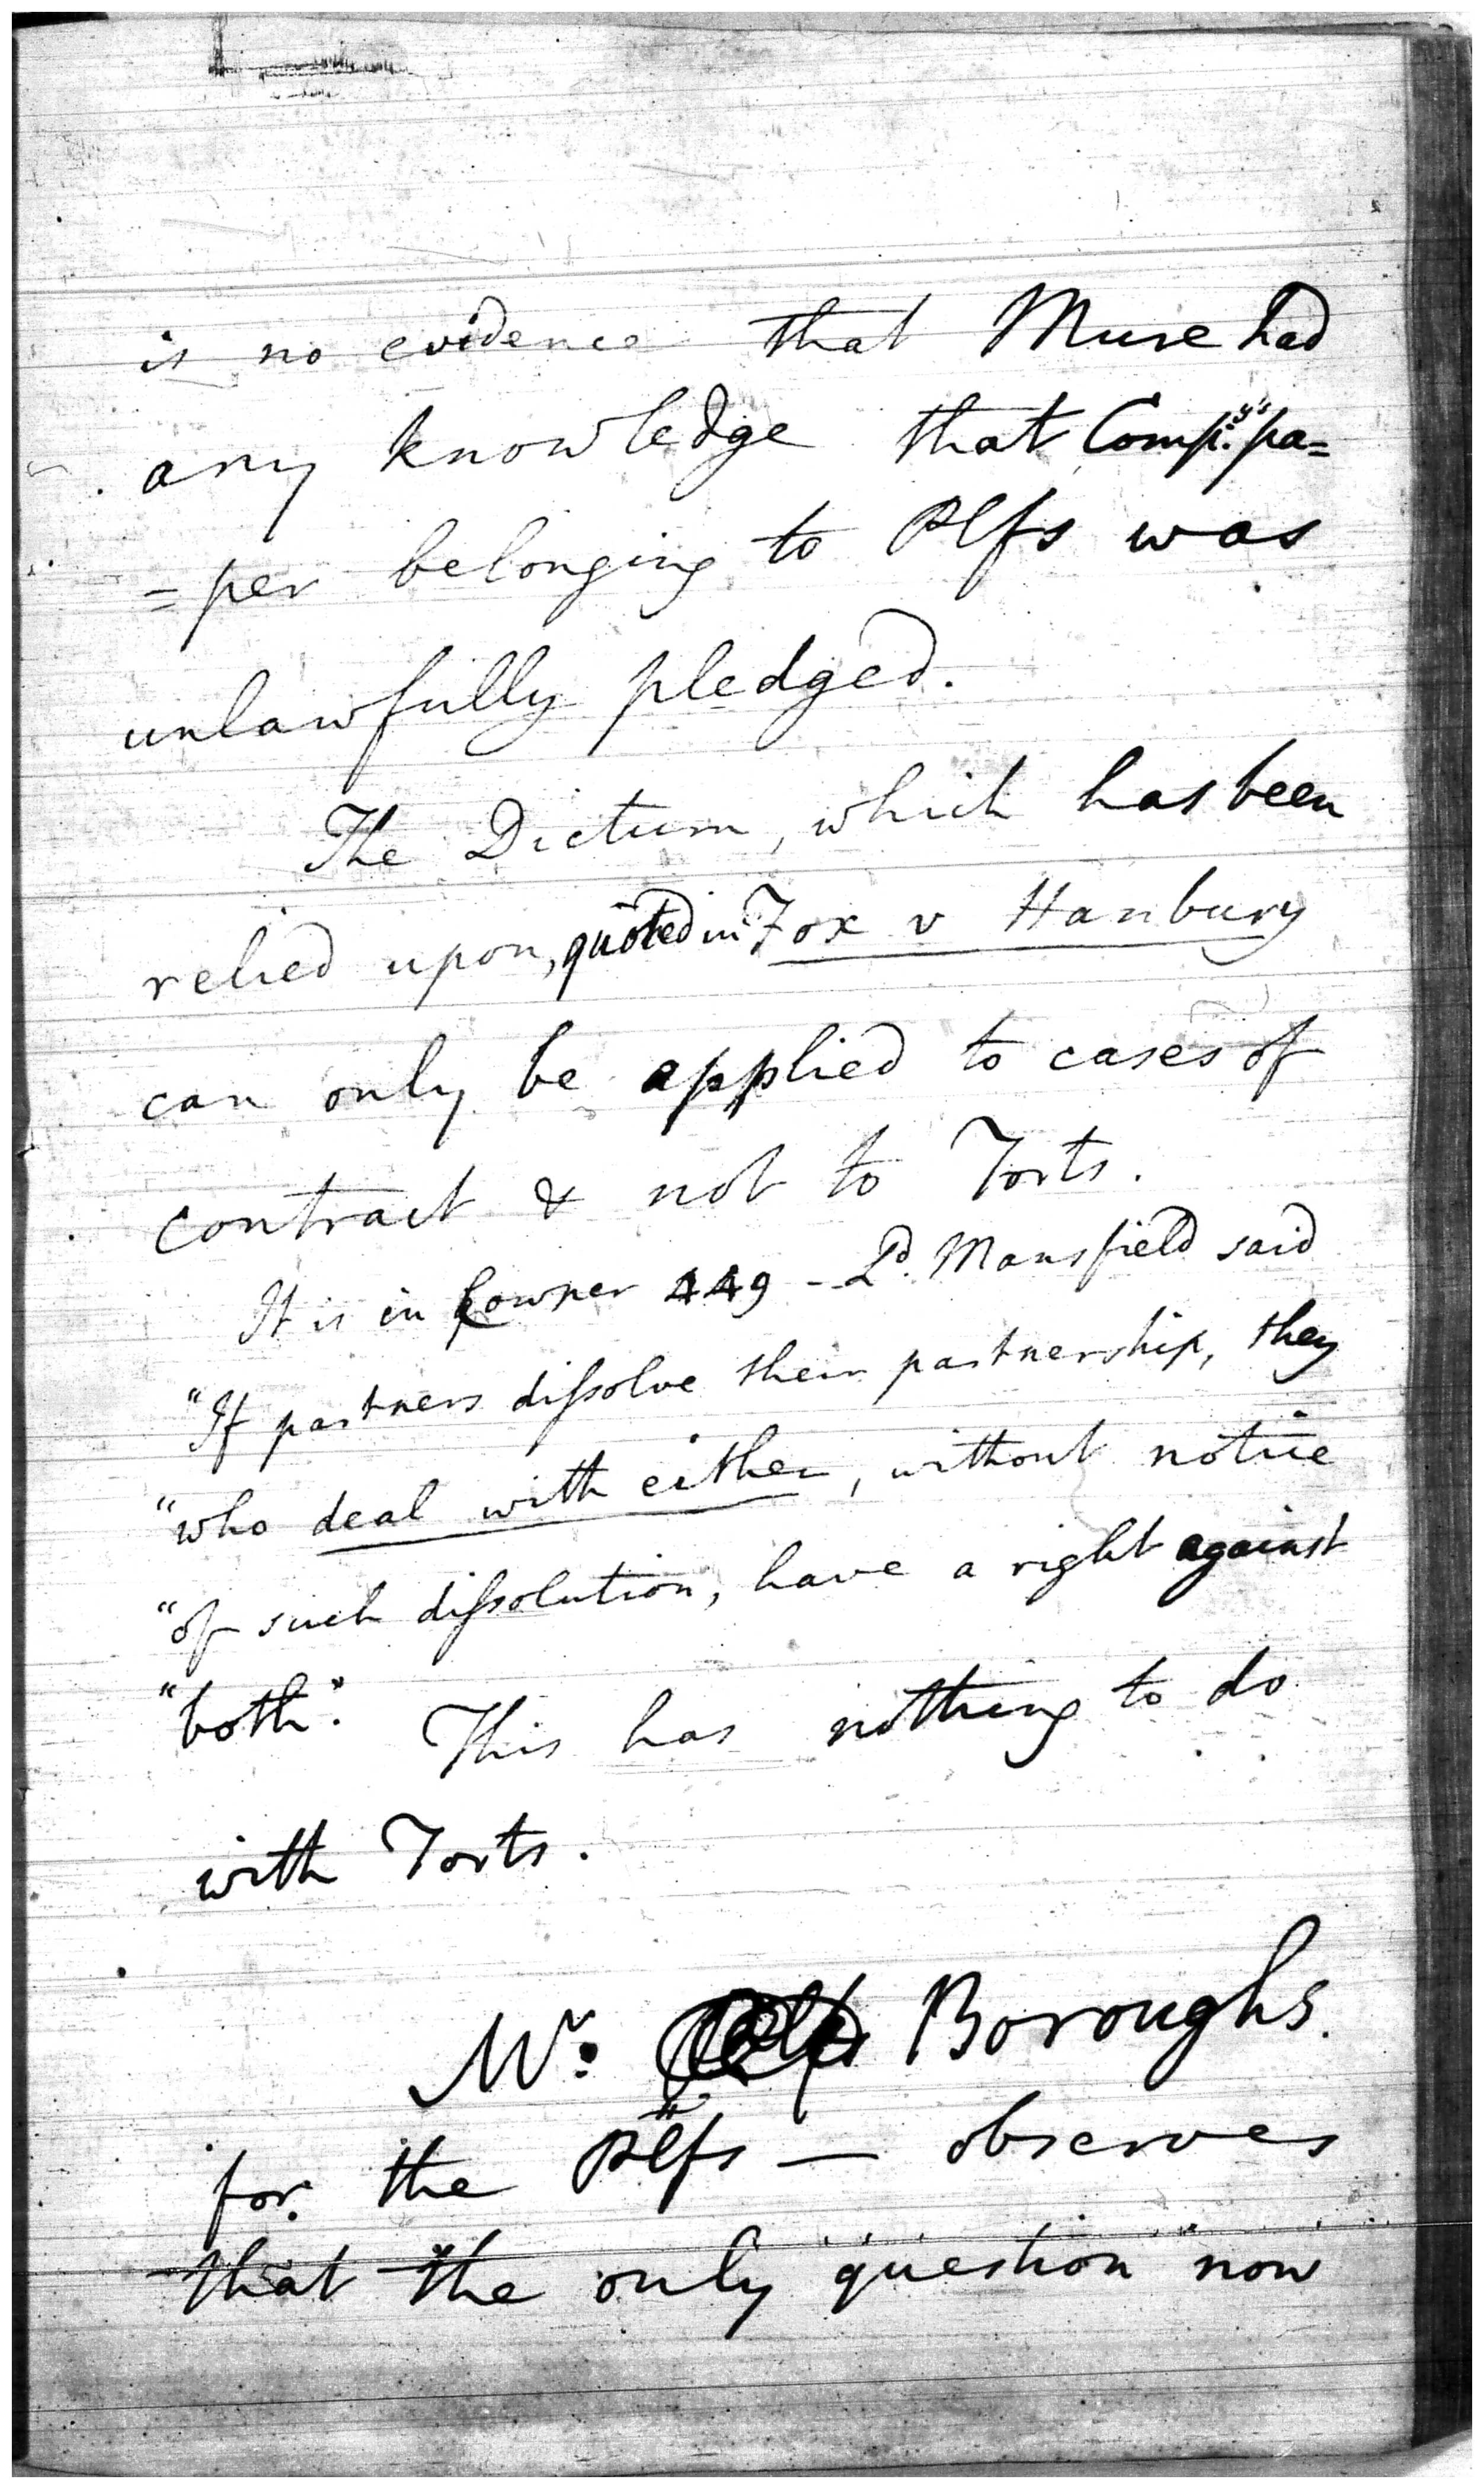 is no evidence that Mure had
any knowledge that Comp.y's pa=
=per belonging to Plfs was
unlawfully pledged.
The Dictum, which has been
relied upon, quoted in Fox v Hanbury
can only be applied to cases of
contract & not to Torts.
It is in Cowper 449 - Ld. Mansfield said
"If partners dissolve their partnership, they
"who deal with either, without notice
"of such dissolution, have a right against
"both". This has nothing to do
with Torts.
Mr. Boroughs.
for the Plfs — observes
that the only question now